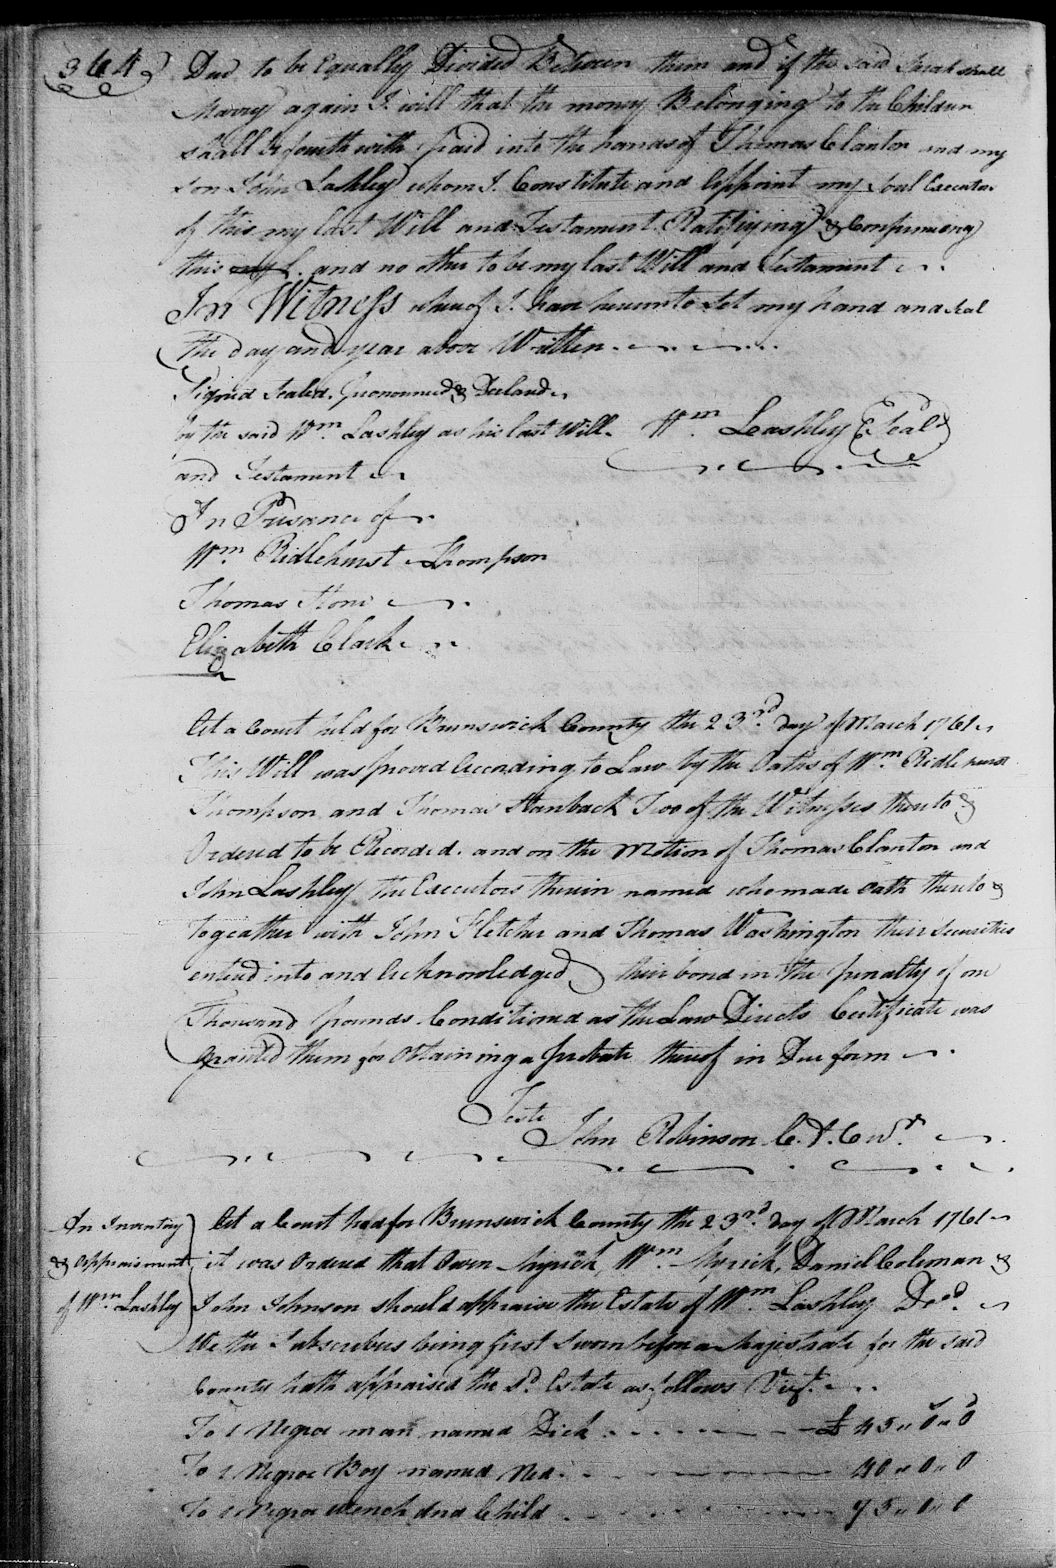 364 Dad to be Equally Divided Between them and if the said Sarah shall
Marry again I will that the money Belonging to the Childern
shall be fourth with paid into the hands of Thomas Clanton and my
son John Lashley whom I Constitute and Appoint my Soul Executor
of this my last Will and Testament Ratifiying & Confirmeing
this and no other to be my last Will and Testament
In Witness whereof I have hereunto set my hand and seal
the day and year above Written
Signed Sealed Pronounced & Declared
by the said Wm. Lashley as his last Will Wm. Lashley (Seal)
and Testament
In Presence of
Wm. Ridlehurst Thompson
Thomas Stone
Elizabeth Clack
At a Court held for Brunswick County the 23rd. day of March 1761
This Will was proved According to Law by the Oaths of Wm. Ridlehurst
Thompson and Thomas Stanback Two of the Witnesses thereto &
Ordered to be Recorded and on the motion of Thomas Clanton and
John Lashley the Executors therein named who made Oath thereto &
togeather with John Fletcher and Thomas Washington their Securities
entered into and Acknowledged their bond in the penalty of one
Thousand pounds Conditioned as the Law Directs Certificate was
granted them for Obtaining a probate thereof in Due form
Teste
John Robinson C. B. C
An Inventory
& Appraisment
of Wm. Lashley
At a Court had for Brunswick County the 23rd. day of March 1761
it was Ordered that Owen Myrick, Wm. Myrick, Daniel Coleman &
John Johnson should appraise the Estate of Wm. Lashley Deced.
We the Subscribers being first sworn before a Majestrate for the said
County hath appraised the Sd. Estate as follows Vizt.
To 1 Negroe man named Dick £ 45 " 0 " 0
To 1 Negroe Boy named Ned 40 " 0 " 0
To 1 Negroe wench and Child 75 " 0 " 0